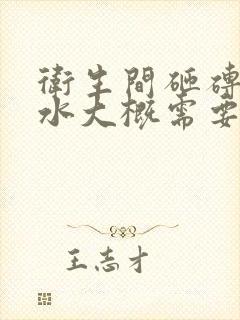 衛生間砸磚
水大概需要
王志才